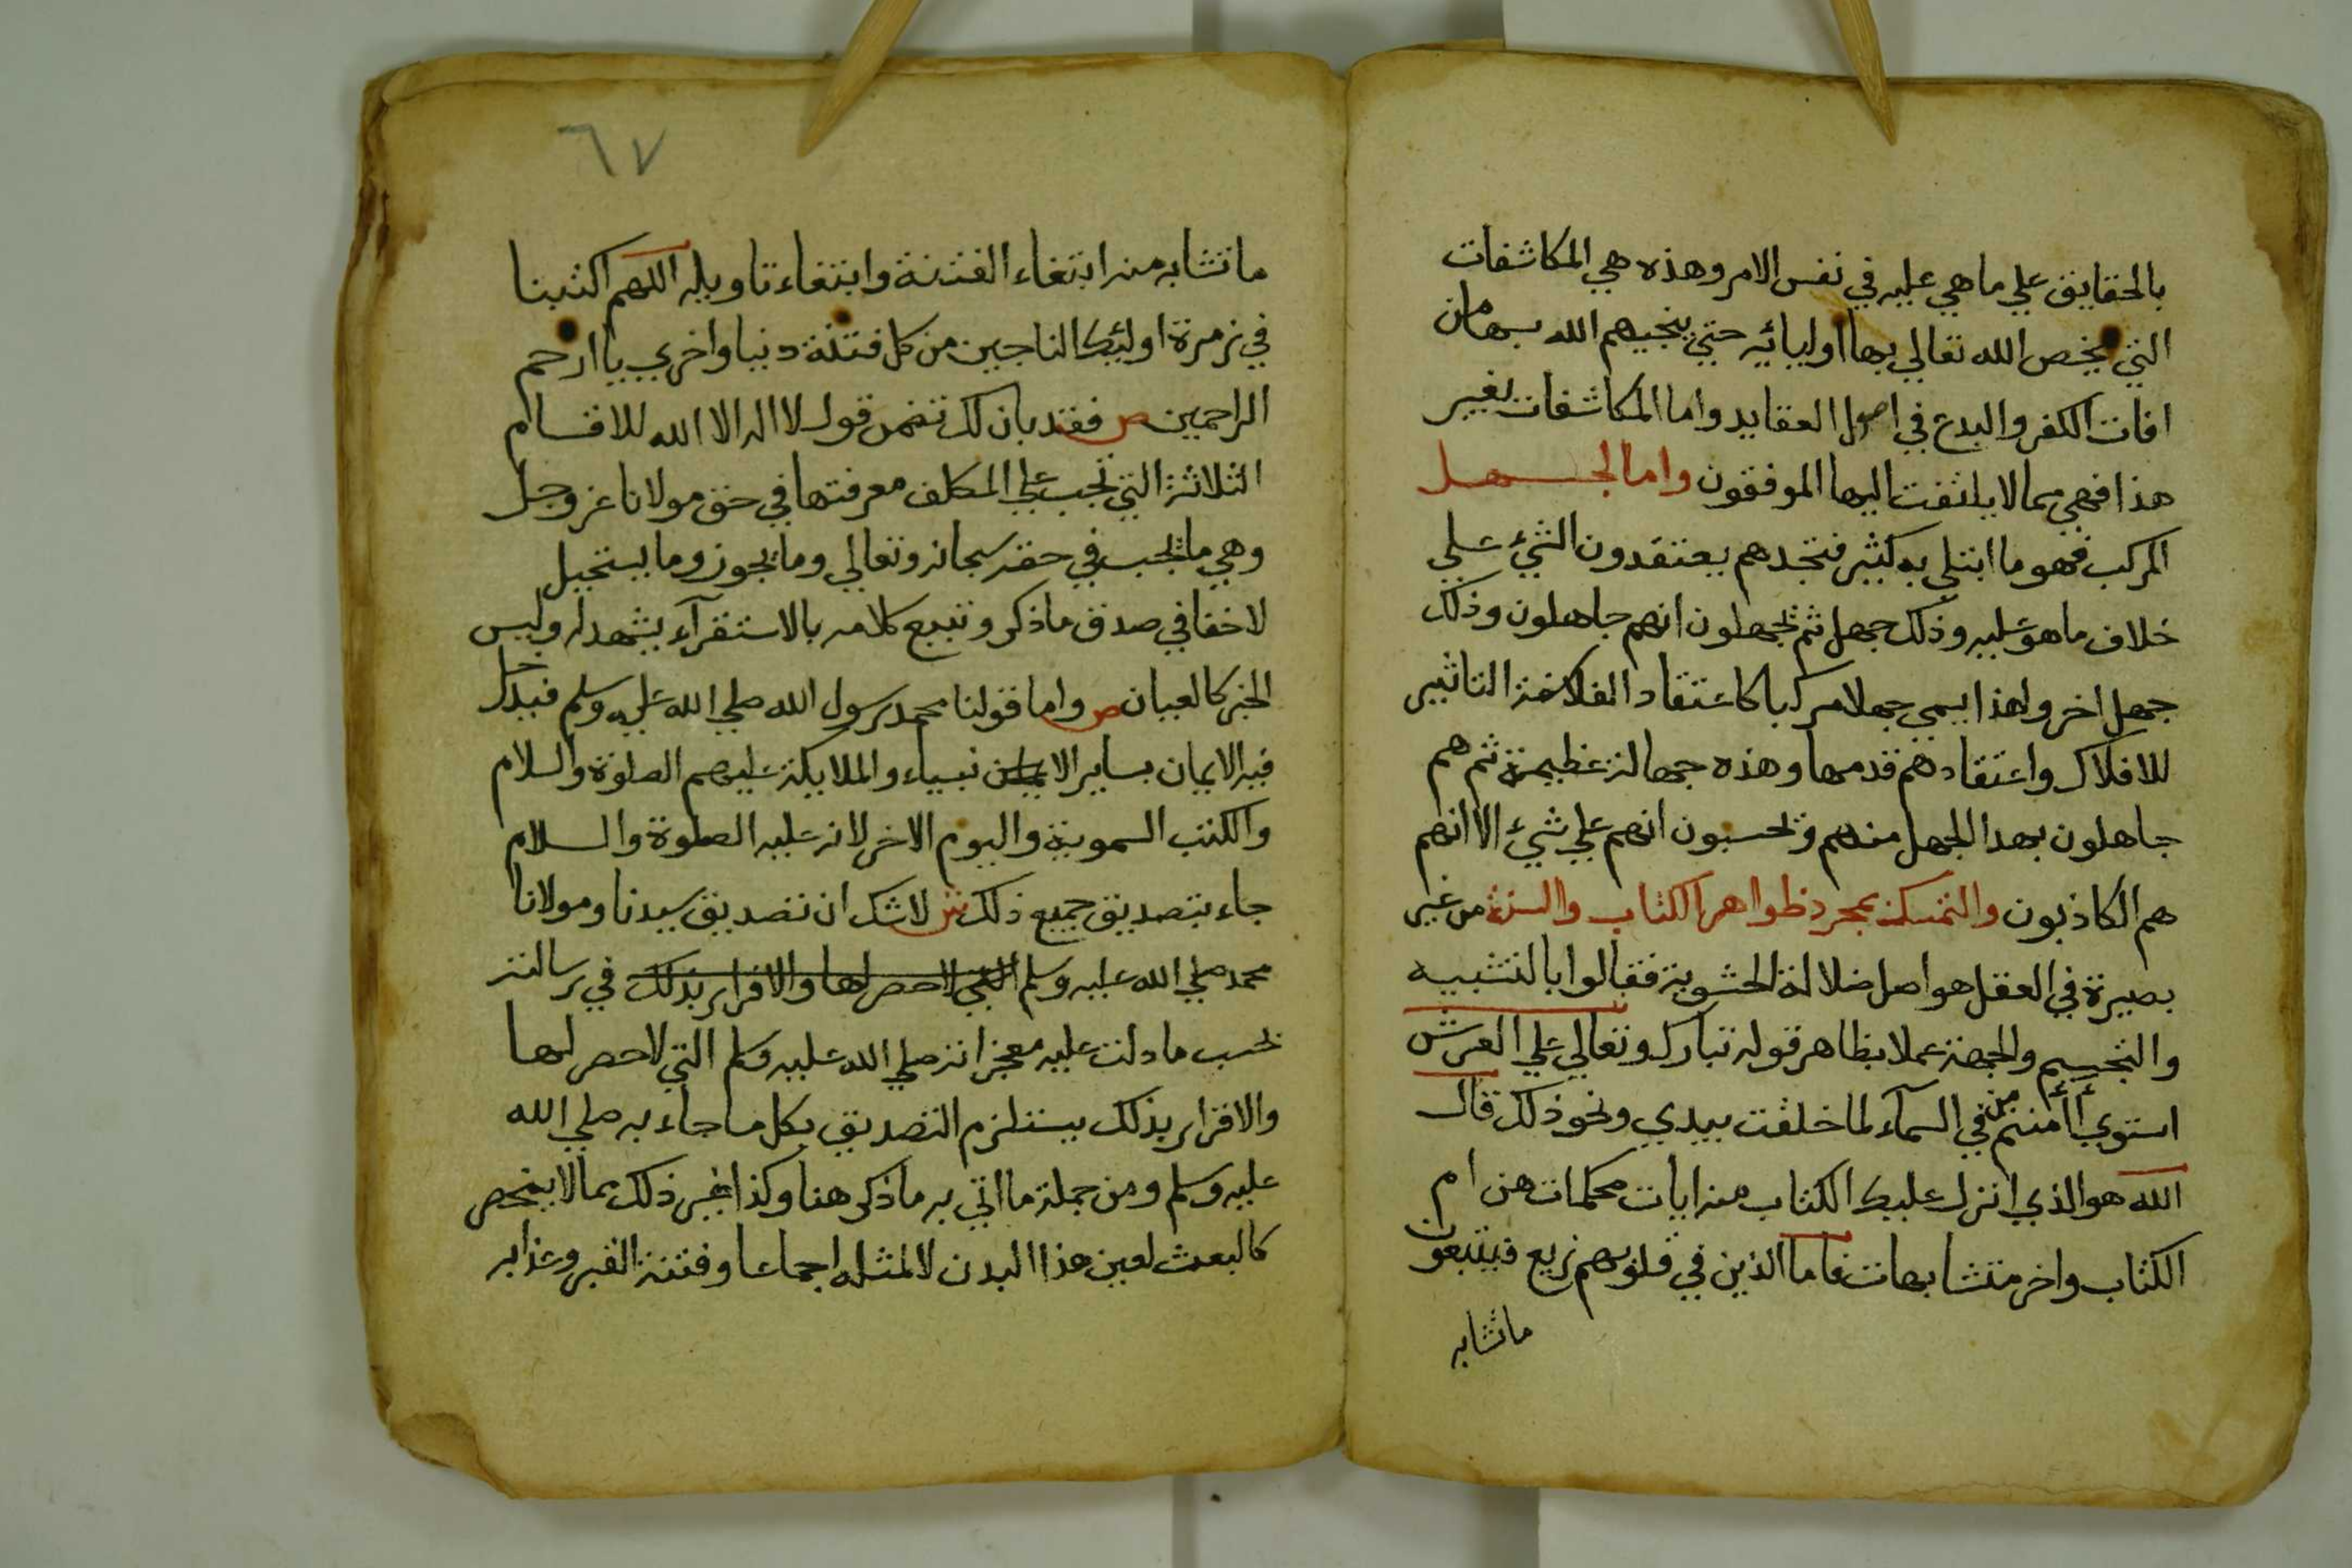 بالحقايق علي ما هي عليه في نفس الامر وهذه هي المكاشفات
التي يخص الله تعالي بها اوليائه حتي ينجيهم الله بها من
افات الكفر والبدع في اصول العقايد واما المكاشفات بغير
هذا فهي مما لا يلتفت اليها الموفقون واما الجهل
المركب فهو ما ابتلي به كثير فتجدهم يعتقدون الشيء علي
خلاف ما هو عليه وذلك جهل ثم يجهلون انهم جاهلون وذلك
جهل اخر ولهذا يسمي جهلا مركبا كاعتقاد الفلاسفة التاثير
للافلاك واعتقادهم قدمها وهذه جهالة عظيمة ثم هم
جاهلون بهذا الجهل منهم ويحسبون انهم علي شيء الا انهم
هم الكاذبون والتمسك بمجرد ظواهر الكتاب والسنة من غير
بصيرة في العقل هو اصل ضلالة الحشوية فقالوا بالتشبيه
والتجسيم والجهة عملا بظاهر قوله تبارك وتعالي علي العرش
استوي أأمنتم من في السمآء لما خلقت بيدي ونحو ذلك قال
الله هو الذي انزل عليك الكتاب منه ايات محكمات هن ام
الكتاب واخر متشابهات فاما الذين في قلوبهم زيع فيتبعون
ما تشابه
٦٧
ما تشابه منه ابتغاء الفتنة وابتغاء تاويله اللهم اكتبنا
في زمرة اوليك الناجين من كل فتنة دنيا واخري يا ارحم
الراحمين ص فقد بان لك تضمن قول لا اله الا الله للاقسام
الثلاثة التي تجب علي المكلف معرفتها في حق مولانا عز وجل
وهي ما يجب في حقه سبحانه وتعالي وما يجوز وما يستحيل
لا خفا في صدق ما ذكر وتتبع كلامه بالاستقرآء يشهد له وليس
الخبر كالعيان ص واما قولنا محمد رسول الله صلي الله عليه وسلم فيدخل
فيه الايمان بساير الانبياء والملايكة عليهم الصلوة والسلام
والكتب السموية واليوم الاخر لانه عليه الصلوة والسلام
جاء بتصديق جميع ذلك ش لا شك ان تصديق سيدنا ومولانا
محمد صلي الله عليه وسلم التي لا حصر لها والاقرار بذلك في رسالته
بحسب ما دلت عليه معجزاته صلي الله عليه وسلم التي لا حصر لها
والاقرار بذلك يستلزم التصديق بكل ما جاء به صلي الله
عليه وسلم ومن جملة ما اتي به ما ذكر هنا وكذا غير ذلك مما لا ينحصر
كالبعث لعين هذا البدن لا لمثله اجماعا وفتنة القبر وعذابه